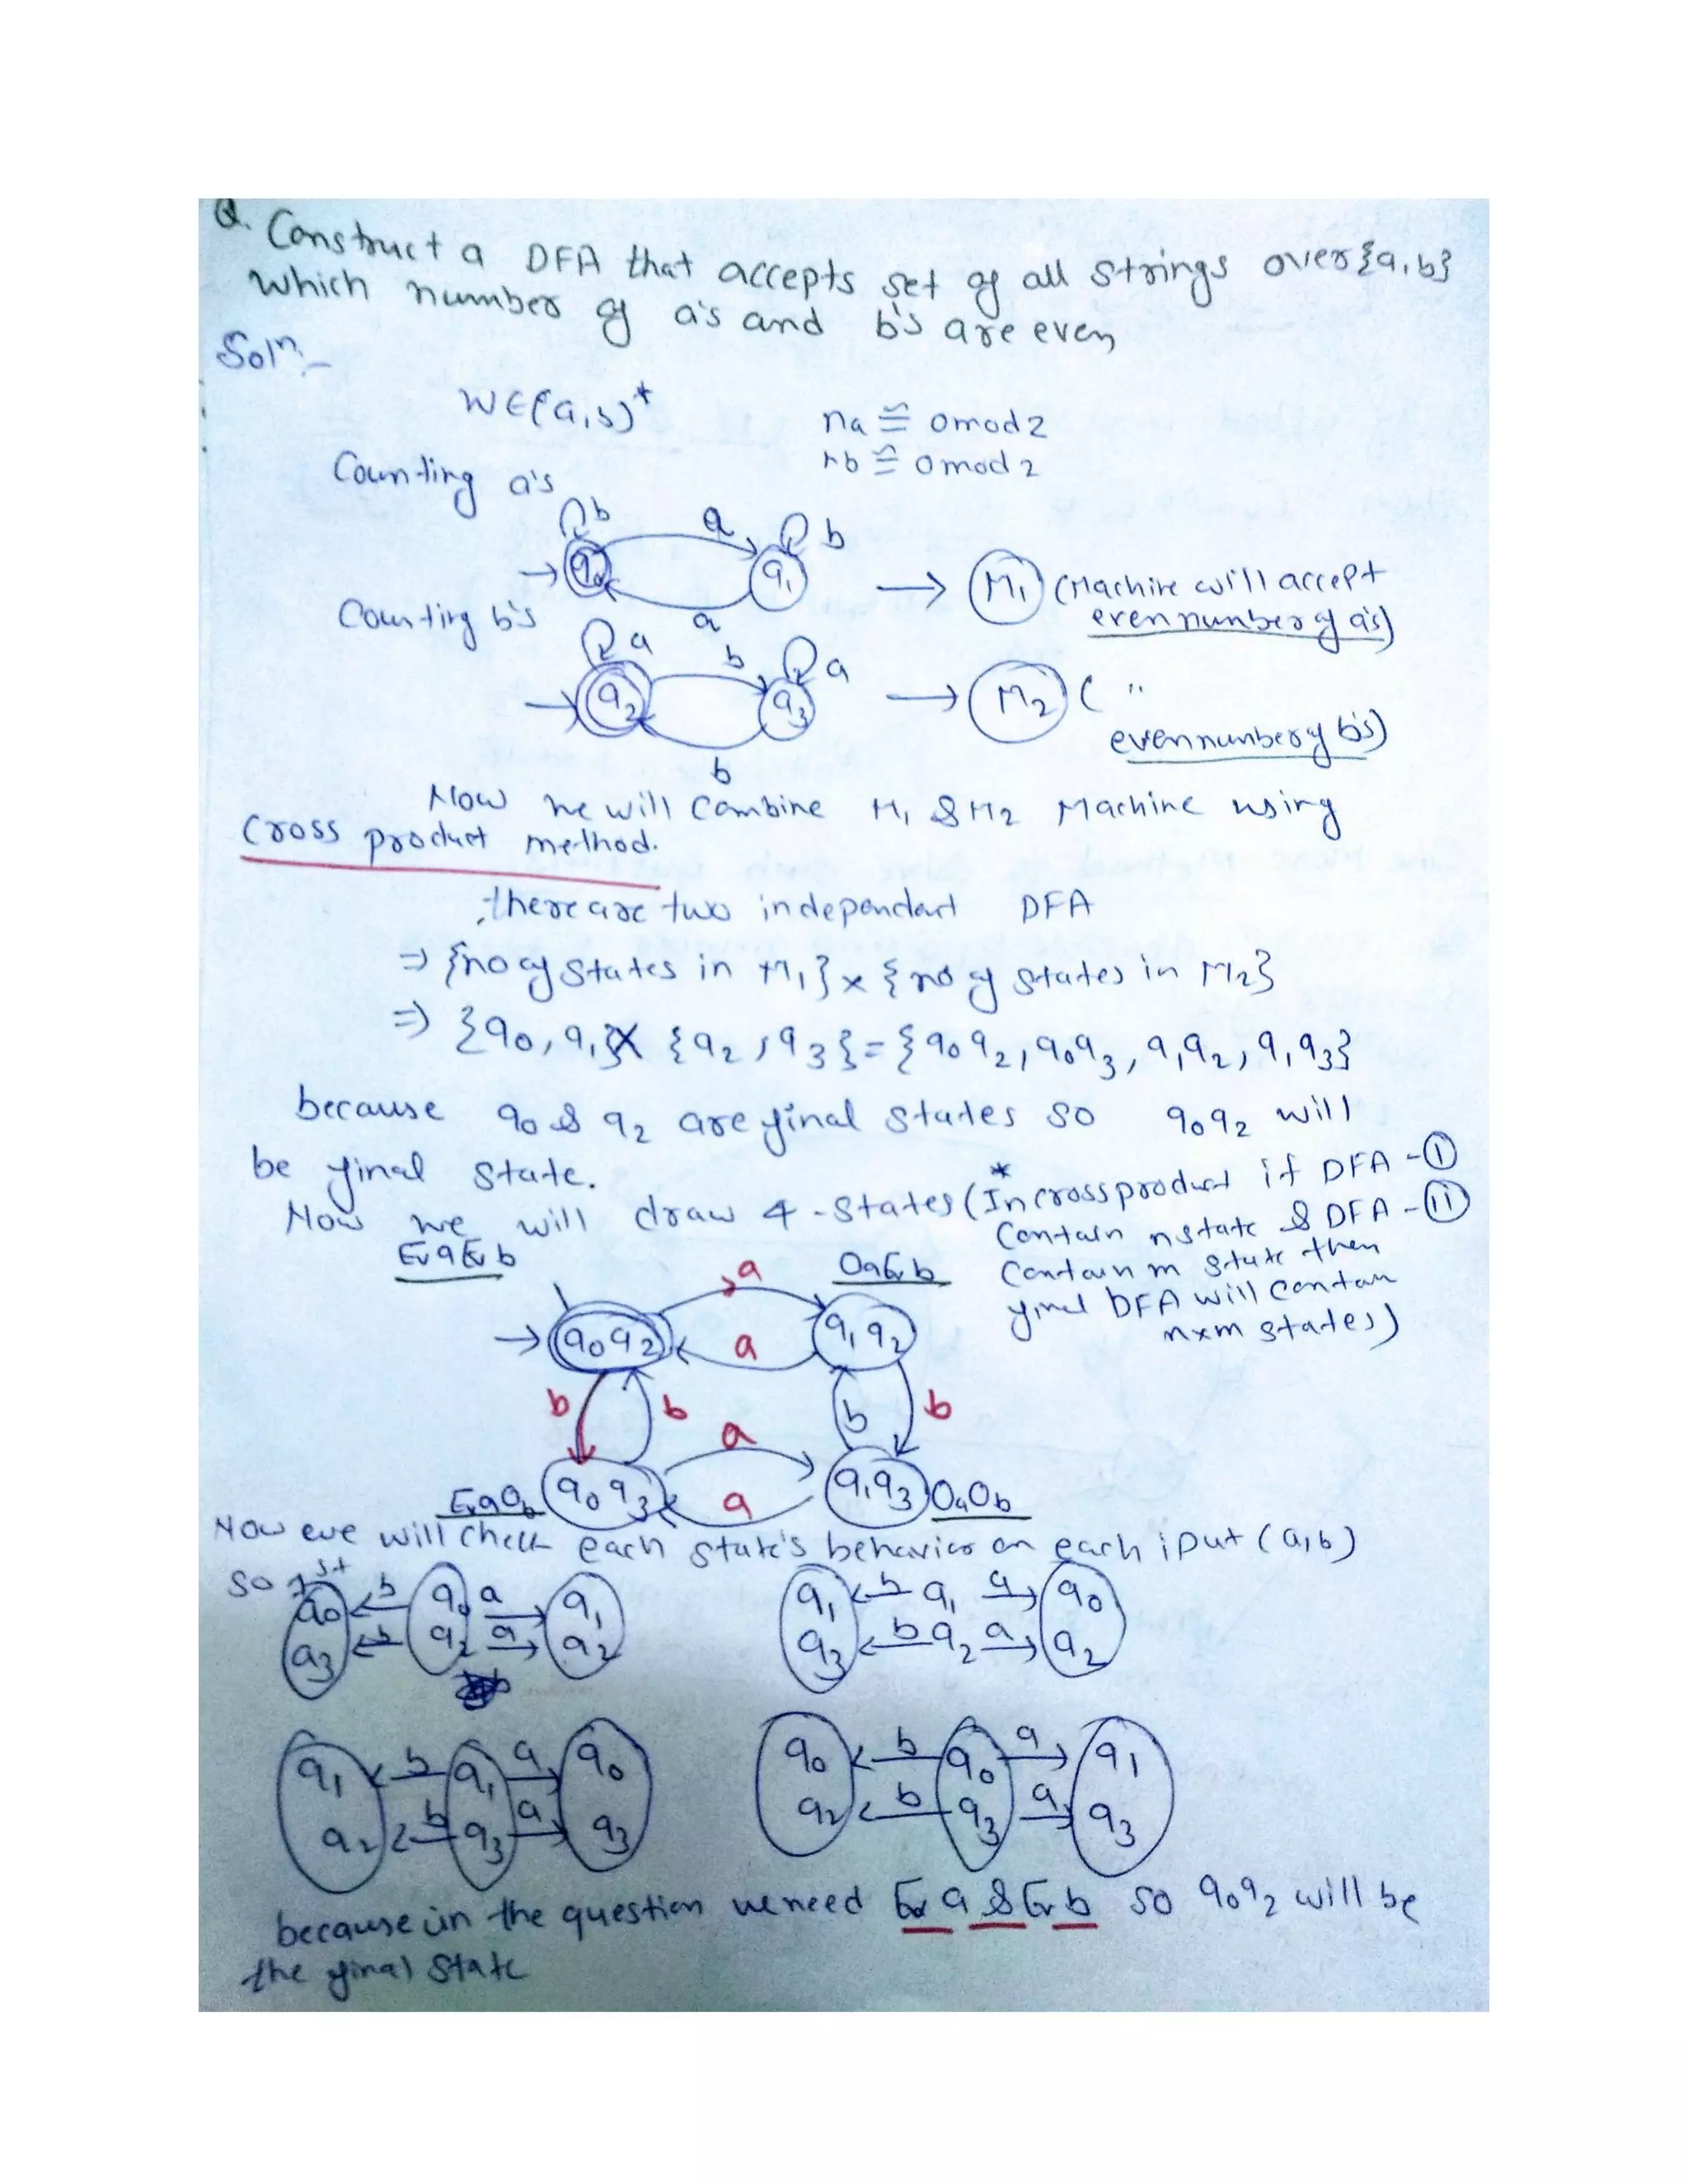 Q. Construct a DFA that accepts set of all strings over {a,b}
which number of a's and b's are even
Solⁿ:-
W∈(a,b)*
na ≅ 0mod2
nb ≅ 0mod2
Counting a's
b a b
q0 q1 → M1 (Machine will accept
even number of a's)
a
Counting b's
a b a
q2 q3 → M2 ( "
even number of b's)
b
Now we will Combine M1 & M2 Machine using
Cross product method.
there are two independent DFA
⇒ {no of states in M1} x {no of states in M2}
⇒ {q0, q1} X {q2, q3} = {q0q2, q0q3, q1q2, q1q3}
because q0 & q2 are final states so q0q2 will
be final state.
Now we will draw 4-states (* In crossproduct if DFA-(I)
Contain n state & DFA-(II)
Contain m state then
final DFA will contain
nxm states)
EvaEvb a OaEvb
→ q0q2 a q1q2
b b b b
a
EvaOb q0q3 a q1q3 OaOb
Now we will check each state's behavior on each iput (a,b)
so 1st
q0 ←b q0 a→ q1
q3 ←b q2 a→ q2
q1 ←b q1 a→ q0
q3 ←b q2 a→ q2
q1 ←b q1 a→ q0
q2 ←b q3 a→ q3
q0 ←b q0 a→ q1
q2 ←b q3 a→ q3
because in the question we need Ev a & Ev b so q0q2 will be
the final state